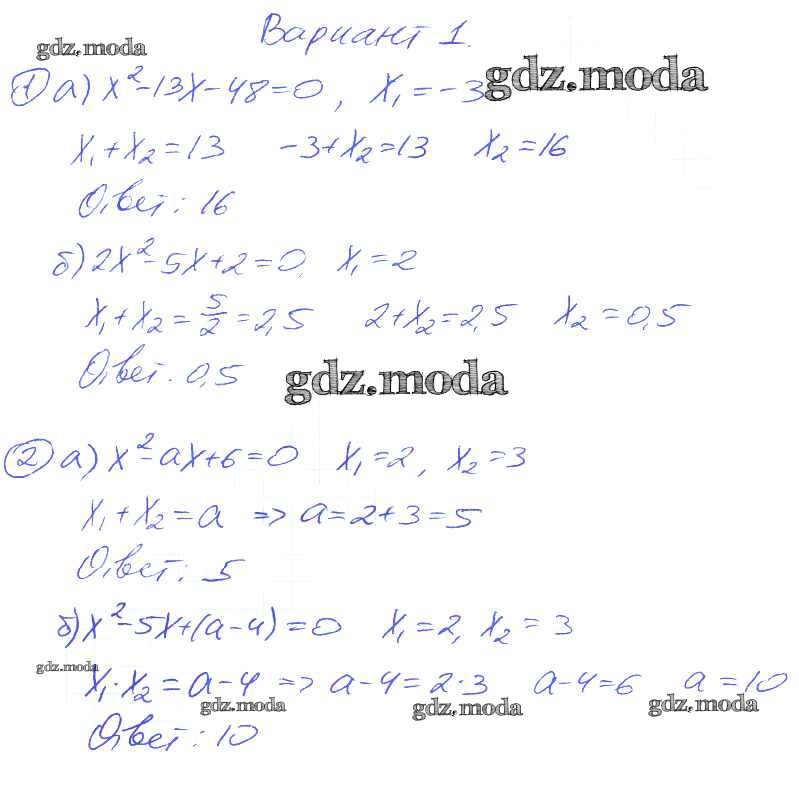 Вариант 1.
gdz.moda
1) а) x²-13x-48=0, x₁=-3
gdz.moda
x₁+x₂=13 -3+x₂=13 x₂=16
Ответ: 16
б) 2x²-5x+2=0, x₁=2
x₁+x₂=5/2=2,5 2+x₂=2,5 x₂=0,5
Ответ. 0,5
gdz.moda
2) а) x²-ax+6=0 x₁=2, x₂=3
x₁+x₂=a => a=2+3=5
Ответ: 5
б) x²-5x+(a-4)=0 x₁=2, x₂=3
gdz.moda
x₁·x₂=a-4 => a-4=2·3 a-4=6 a=10
gdz.moda gdz.moda gdz.moda
Ответ: 10